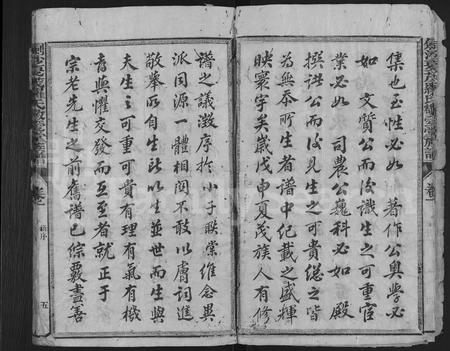 集也至性必如 著作公與學必
如 文贊公而後識生之可重官
業必如 司農公巍科必如 殿
撰諸公而後生之可貴總之皆
為無忝所生者譜中紀載之盛輝
映寰宇矣歲戊申夏茂族人有修
譜之議徵序於小子聯棠維念異
派同源一體相關不敢以膚詞進
敬舉所自生所以生並世而生與
夫生之可重可貴有理有氣有機
者與懼交發而互至者就正于
宗老先生之前舊譜已綜覈盡善
序
五